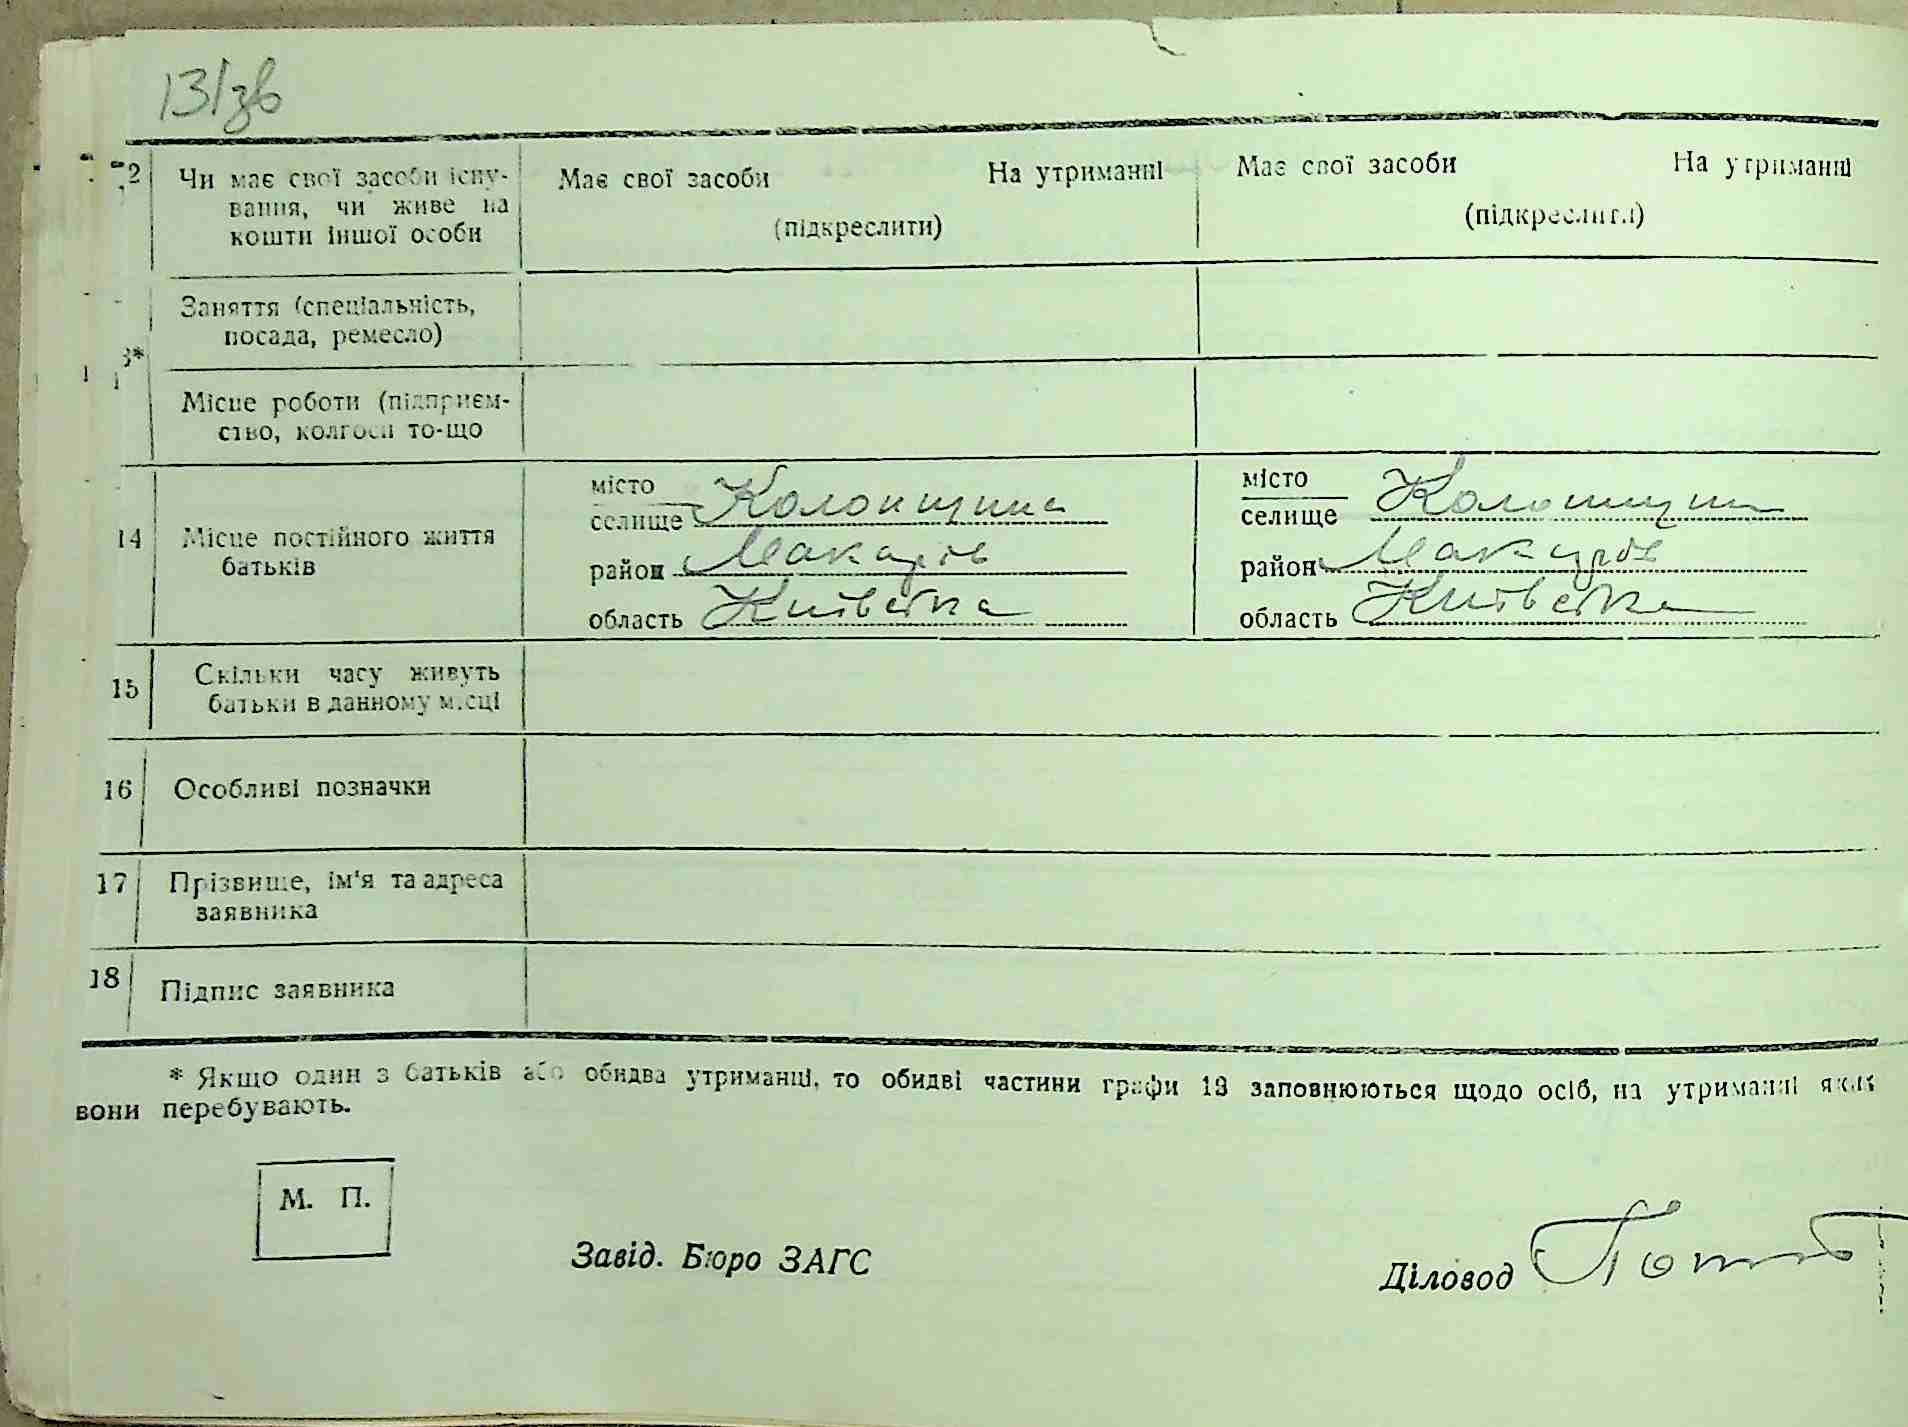 131зв
12 Чи має свої засоби існу- Має свої засоби На утриманні Має свої засоби На утриманні
вання, чи живе на (підкреслити) (підкреслити)
кошти іншої особи
Заняття (спеціальність,
посада, ремесло)
3*
Місце роботи (підприєм-
ство, колгосп то-що
місто місто
селище Колонщина селище Колонщин
14 Місце постійного життя
батьків
район Макарів район Макарів
область Київська область Київська
15 Скільки часу живуть
батьки в данному місці
16 Особливі позначки
17 Прізвище, ім'я та адреса
заявника
18 Підпис заявника
* Якщо один з батьків або обидва утриманці, то обидві частини графи 13 заповнюються щодо осіб, на утриманні яких
вони перебувають.
М. П.
Завід. Бюро ЗАГС
Діловод